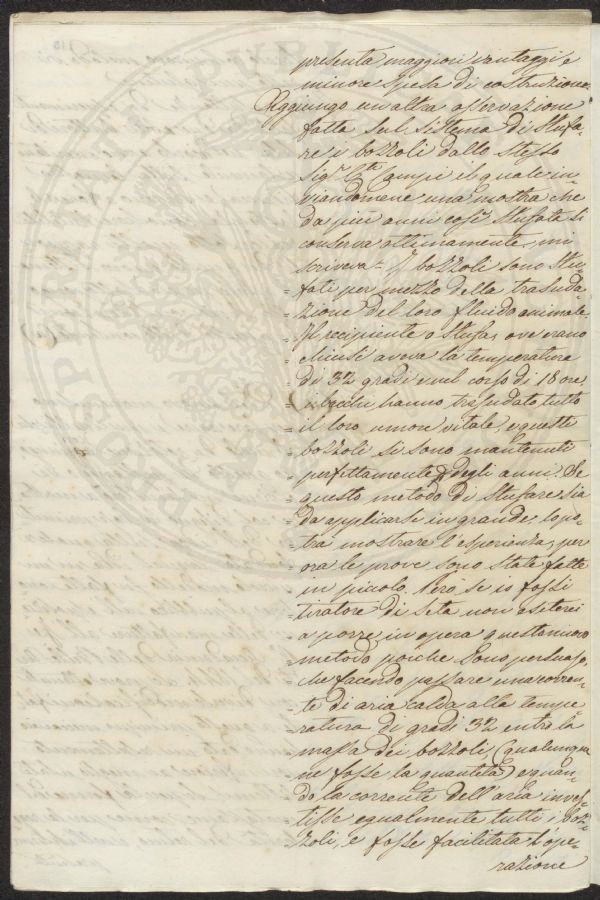 presenta maggiori vantaggi e
minore spesa di costruzione.
Aggiungo un'altra osservazione
fatta sul sistema di stufa-
re i bozzoli dallo stesso
Sig.r C.ta Campi il quale in-
viandomene una mostra che
da più anni così stufata si
conserva ottimamente, mi
scriveva = I bozzoli sono stu-
= fati per mezzo della trasuda-
= zione del loro fluido animale.
= Il recipiente o stufa, ove erano
= chiusi aveva la temperatura
= di 32 gradi e nel corso di 18 ore
= i bachi hanno trasudato tutto
= il loro umore vitale, e questi
= bozzoli si sono mantenuti
= perfettamente degli anni. Se
= questo metodo di stufare sia
= da applicarsi in grande, lo po-
= tra mostrare l'esperienza, per
= ora le prove sono state fatte
= in piccolo. Però se io fossi
= tiratore di seta non esiterei
= a porre in opera questo nuovo
= metodo poiche sono persuaso,
= che facendo passare una corren-
= te di aria calda alla tempe-
= ratura di gradi 32 entro la
= massa dei bozzoli (qualunque
= ne fosse la quantità) e quan-
= do la corrente dell'aria inves-
= tisse egualmente tutti i boz-
= zoli, e fosse facilitata l'ope-
razione